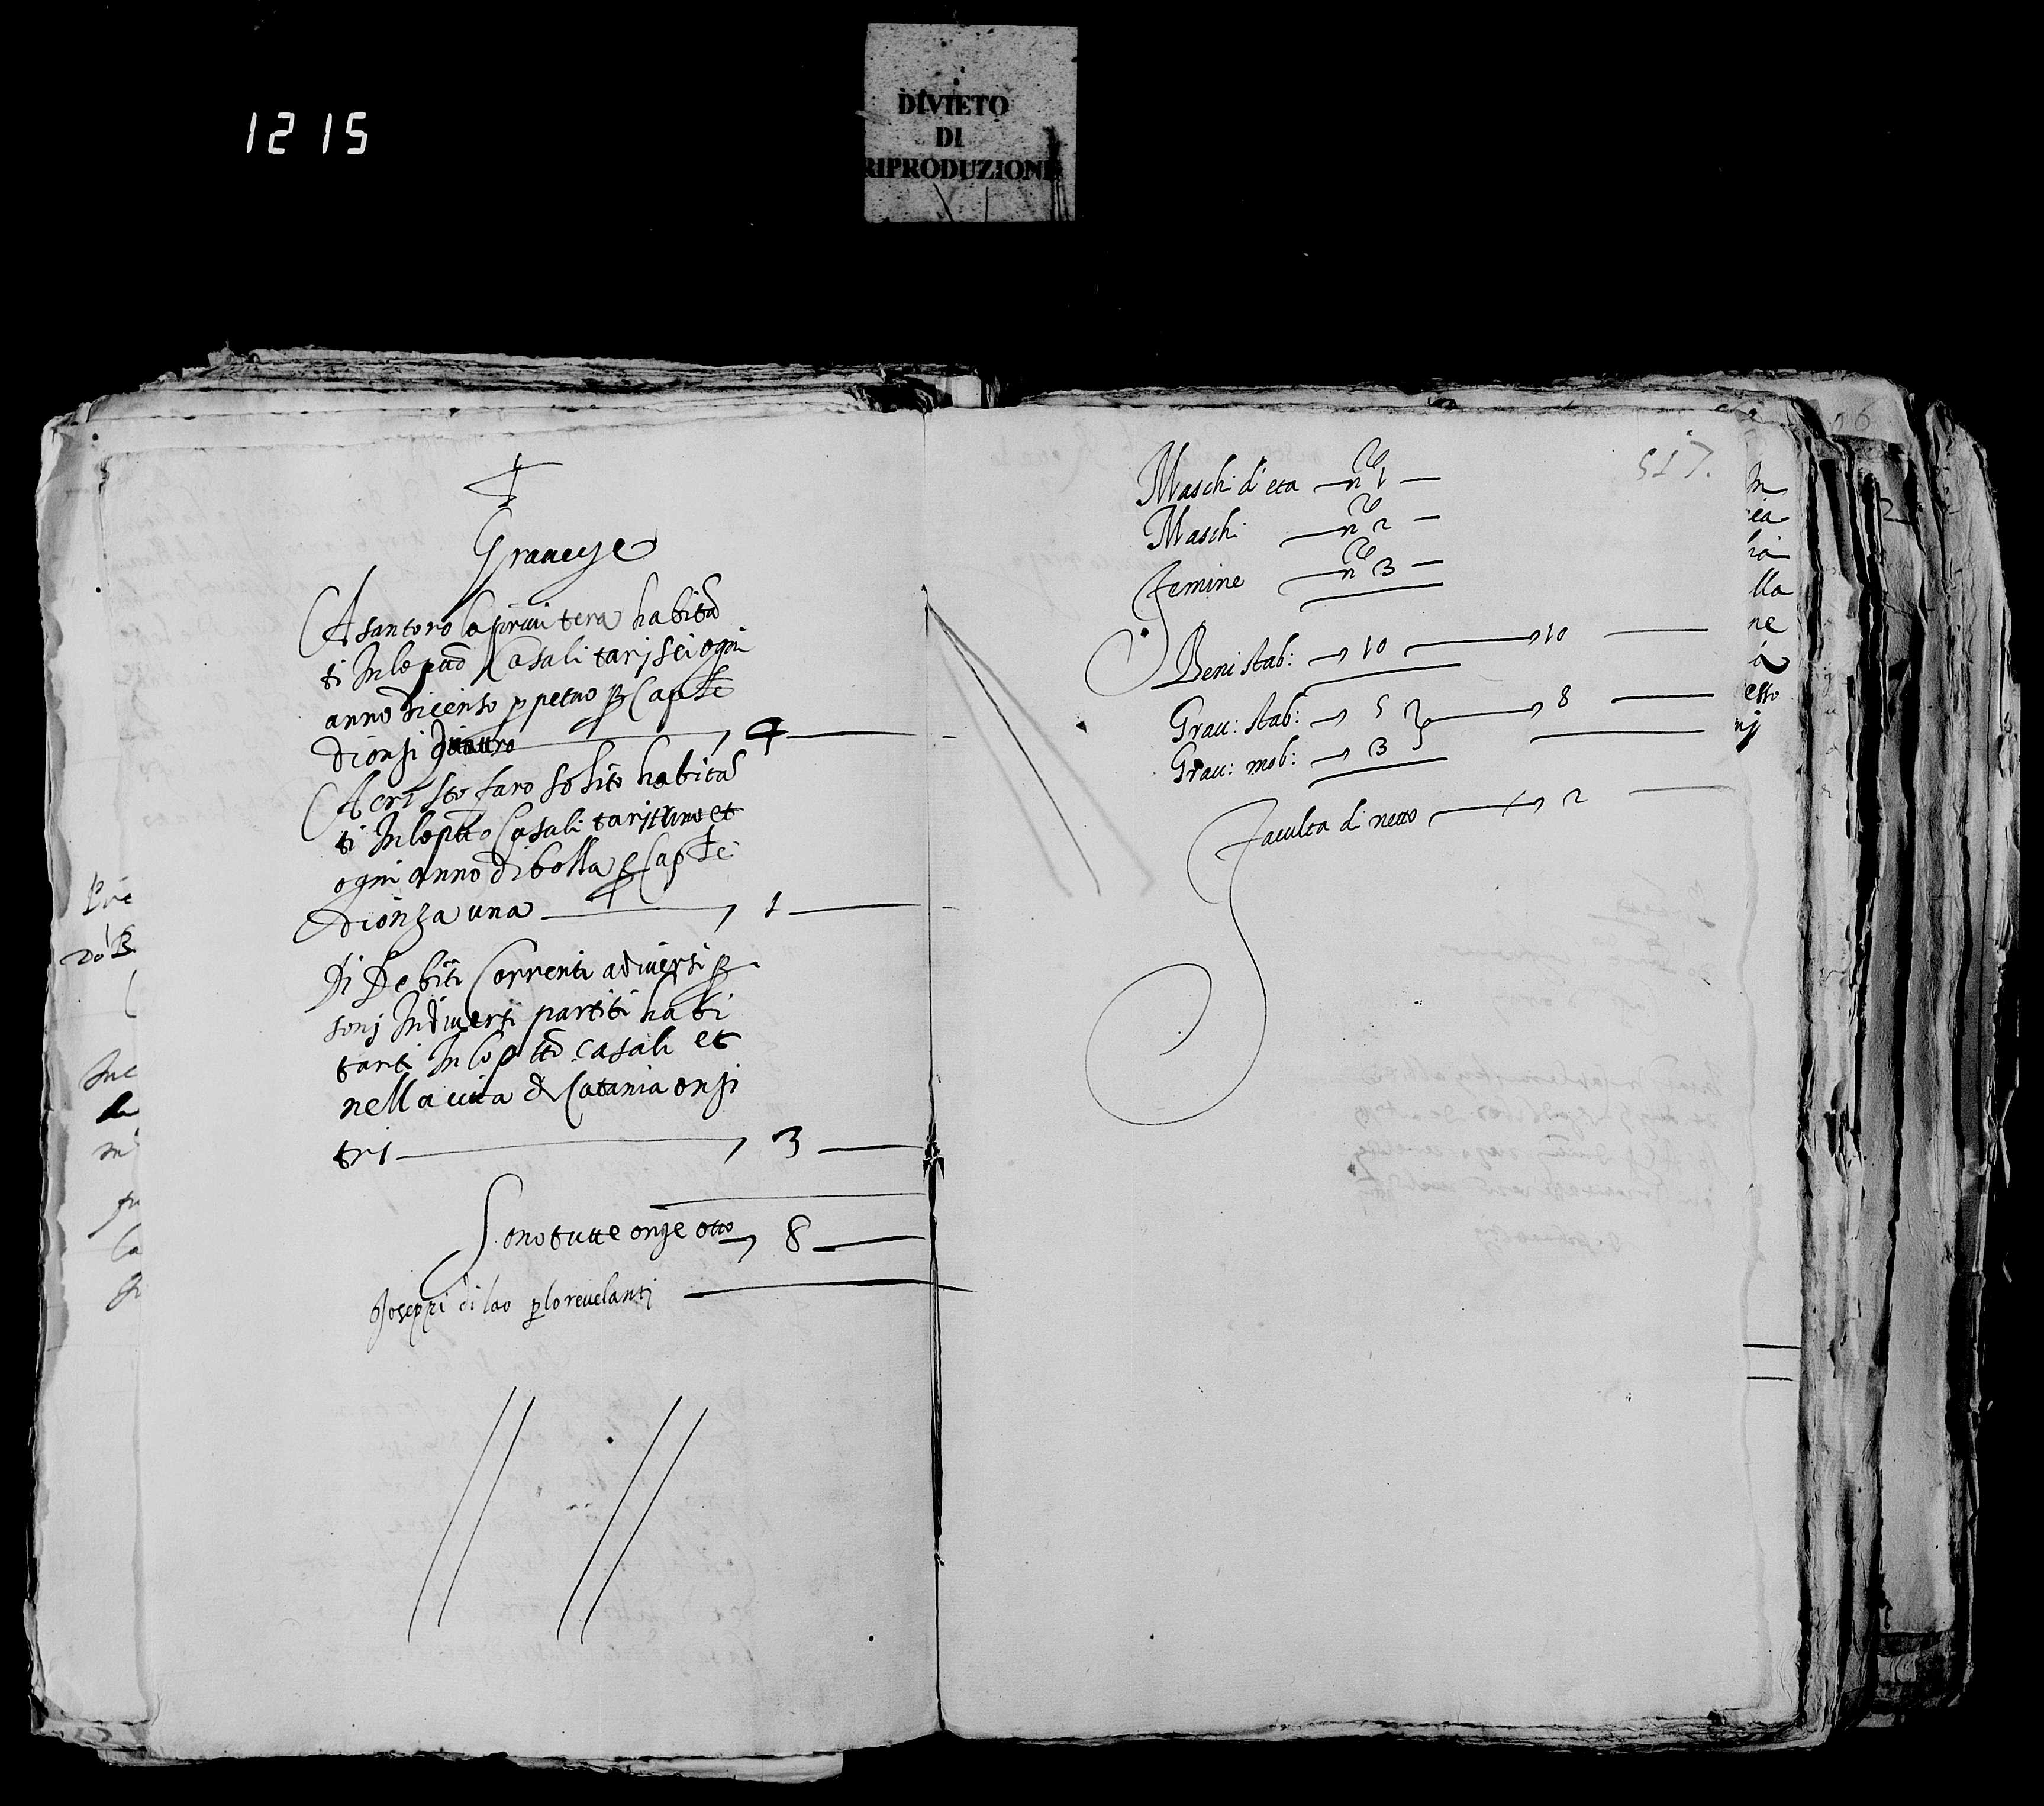 1215
DIVIETO
DI
RIPRODUZIONE
Graveze
A santoro la habita
ti In lo casali tarj sei ogni
anno di censo p petuo p Cap.le
di onsi quattro 4
A cristofaro solito habita
ti In lo ptto casali tarj et
ogni anno di bolla p Cap.le
di onza una 1
Di Debiti Correnti a diversi p
sonj In diversi partiti habi
tanti In lo ptto casali et
nella cita di Catania onsi
tri 3
Sono tutte onze otto 8
Joseppi di lao p lo revelanti
517.
Maschi d'eta no 1
Maschi no 2
Femine no 3
Beni stab: 10 10
Grau: stab: 5 8
Grau: mob: 3
Faculta di netto 2